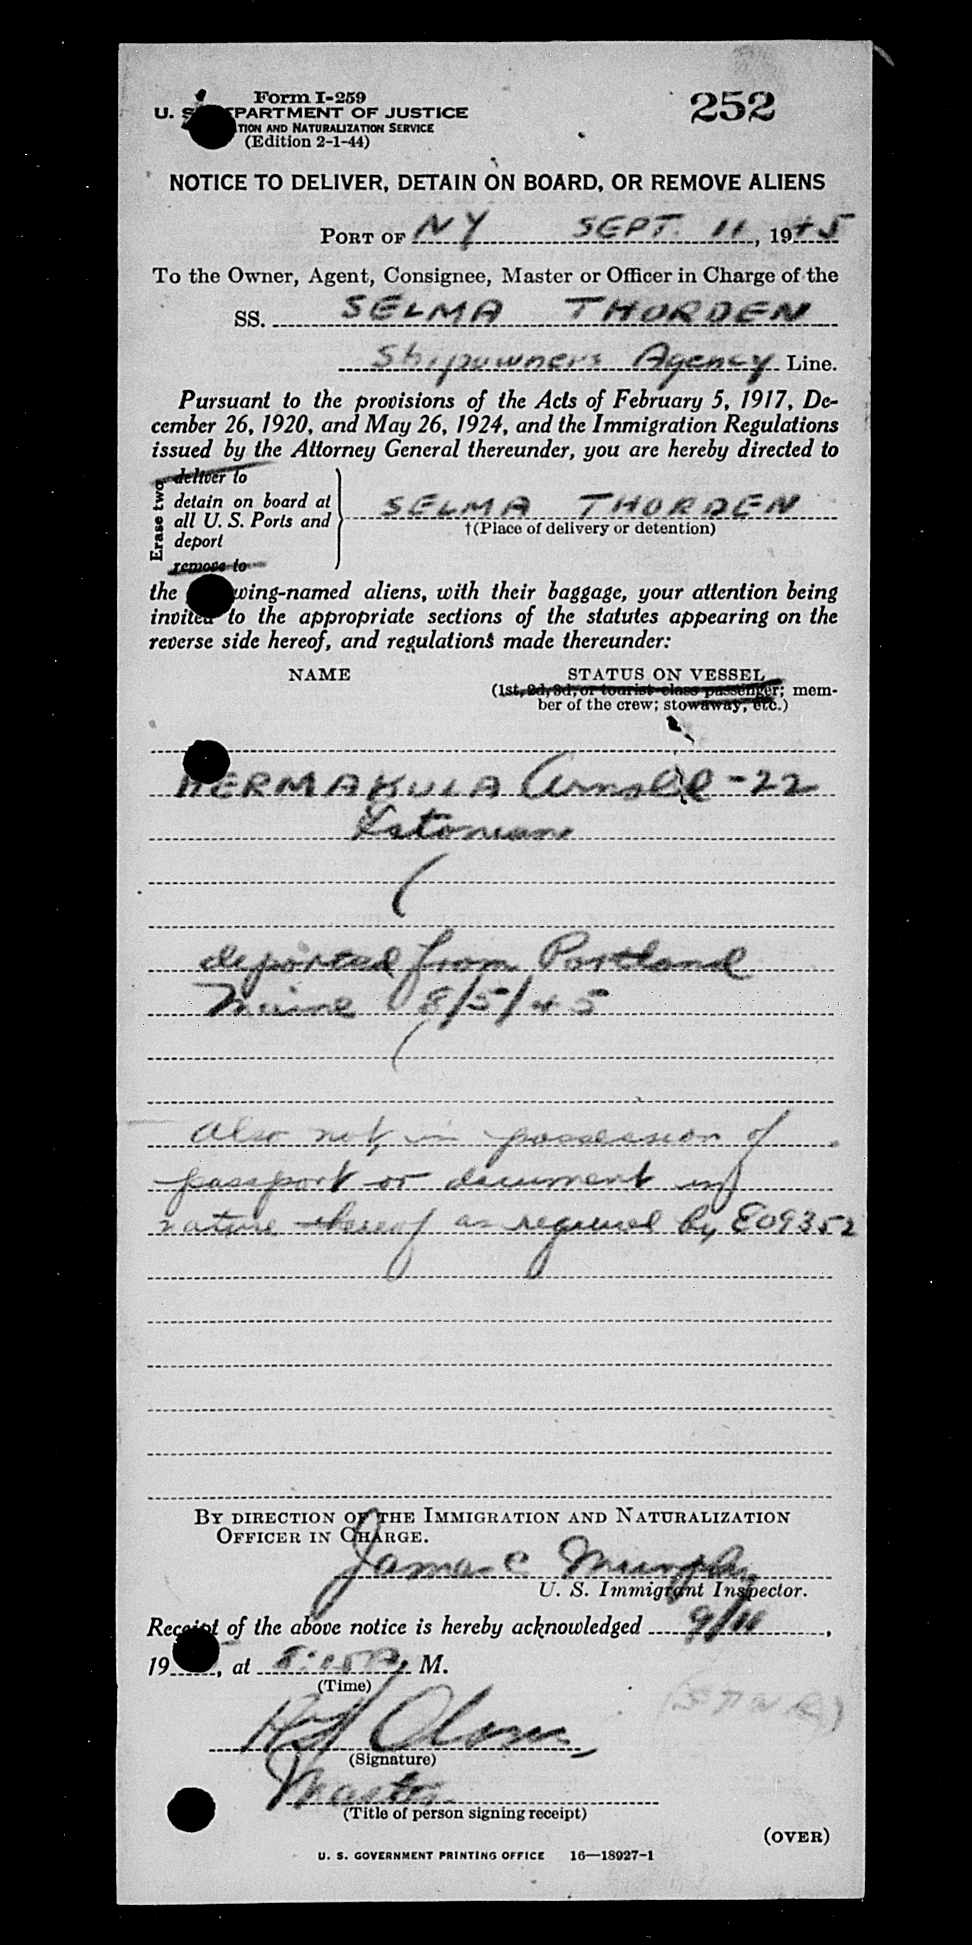 Form I-259
252
U. S. DEPARTMENT OF JUSTICE
TION AND NATURALIZATION SERVICE
(Edition 2-1-44)
NOTICE TO DELIVER, DETAIN ON BOARD, OR REMOVE ALIENS
PORT OF NY SEPT. 11, 1945
To the Owner, Agent, Consignee, Master or Officer in Charge of the
SS. SELMA THORDEN
Shipowners Agency Line.
Pursuant to the provisions of the Acts of February 5, 1917, De-
cember 26, 1920, and May 26, 1924, and the Immigration Regulations
issued by the Attorney General thereunder, you are hereby directed to
Erase two
deliver to
detain on board at
all U. S. Ports and
deport
remove to
SELMA THORDEN
†(Place of delivery or detention)
the wing-named aliens, with their baggage, your attention being
invited to the appropriate sections of the statutes appearing on the
reverse side hereof, and regulations made thereunder:
NAME STATUS ON VESSEL
(1st, 2d, 3d, or tourist class passenger; mem-
ber of the crew; stowaway, etc.)
HERMAKULA Arnold - 22
Estonian
(
deported from Portland
Maine 8/5/45
(
Also not in possession of
passport or document in
nature thereof as required by EO9352
BY DIRECTION OF THE IMMIGRATION AND NATURALIZATION
OFFICER IN CHARGE.
James C Murphy
U. S. Immigrant Inspector.
Receipt of the above notice is hereby acknowledged 9/11,
19, at 5:15 P. M.
(Time)
Olsen
(Signature)
Master
(Title of person signing receipt)
(OVER)
U. S. GOVERNMENT PRINTING OFFICE 16—18927-1